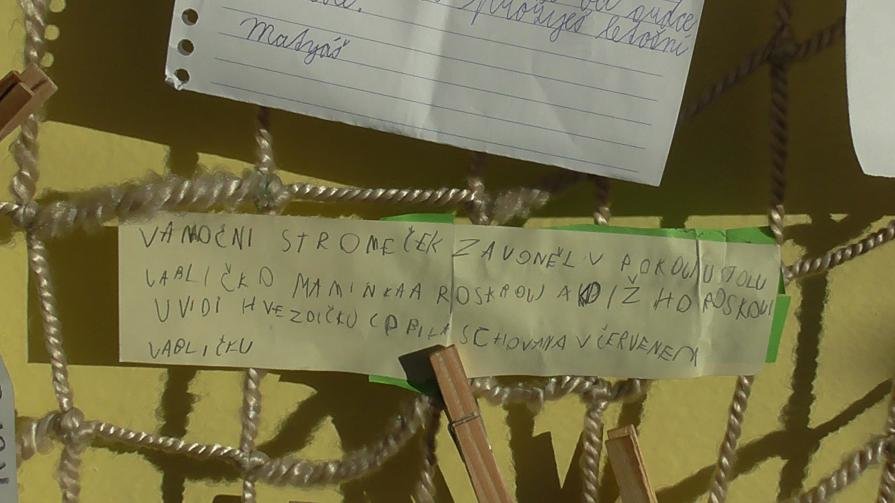 prožiješ letošní
Matyáš
VÁNOČNI STROMEČEK ZAVONĚL V POKOUJ USTOLU
UABLIČKO MAMINKAA ROSKROU A DIŽ HO ROSKOUI
UVIDI HVEZDIČKU COBILA SCHOVANA V ČERVENEM
UABLIČKU